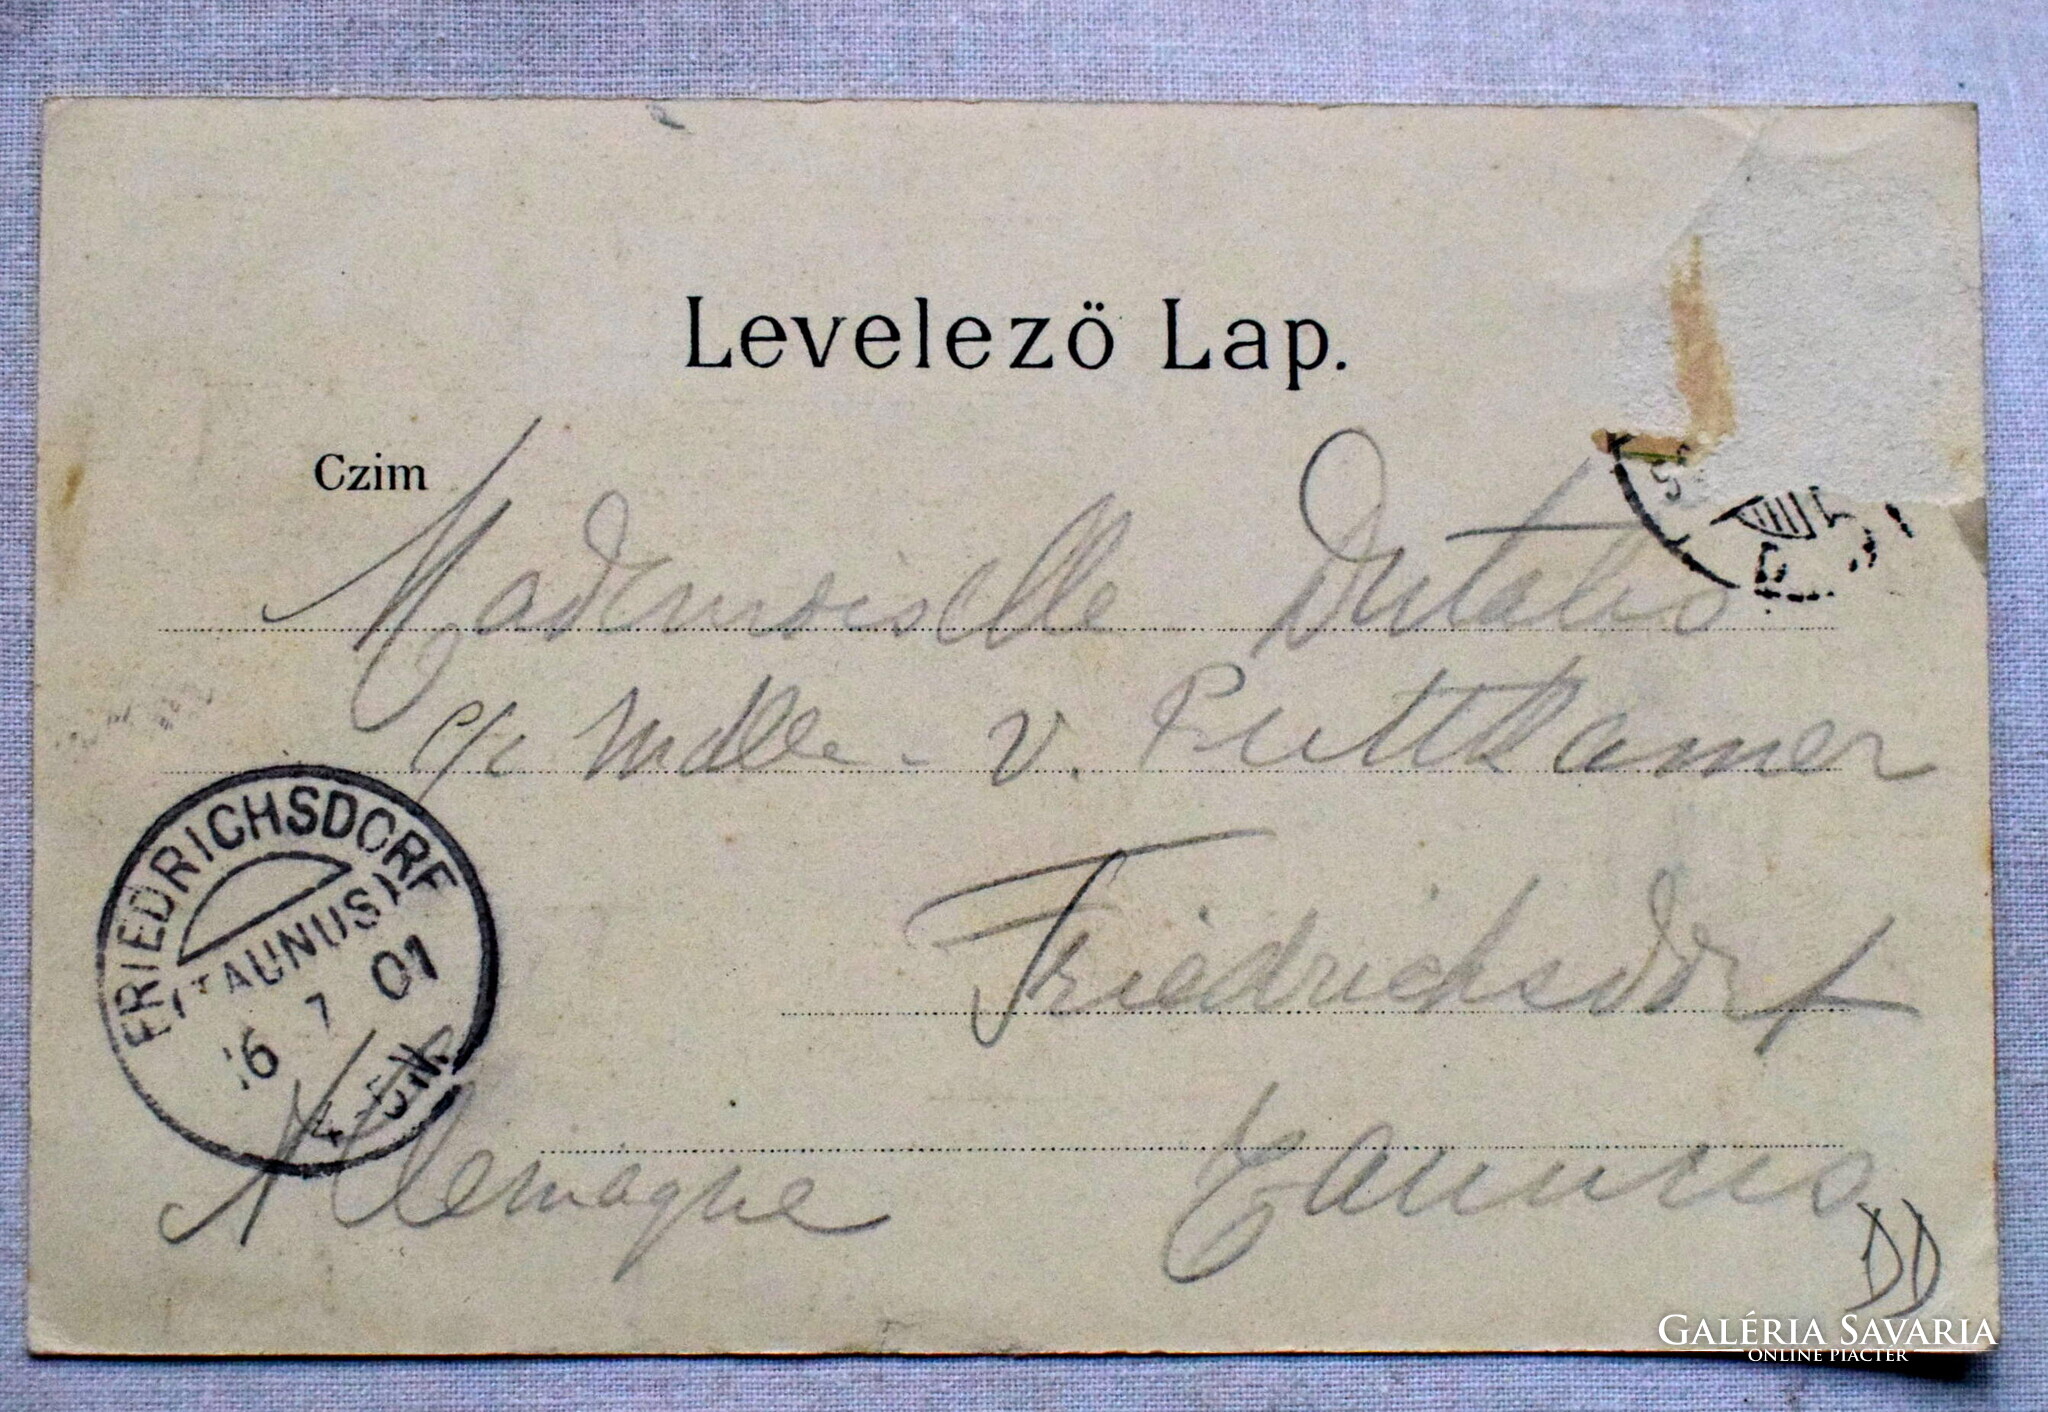 Levelező Lap.
Czim
Mademoiselle
c/o Mdlle - v. Puttkamer
Friedrichsdorf
Taunus
Allemagne
FRIEDRICHSDORF
(TAUNUS)
6 7 01
4-5N
DD
GALÉRIA SAVARIA
ONLINE PIACTÉR